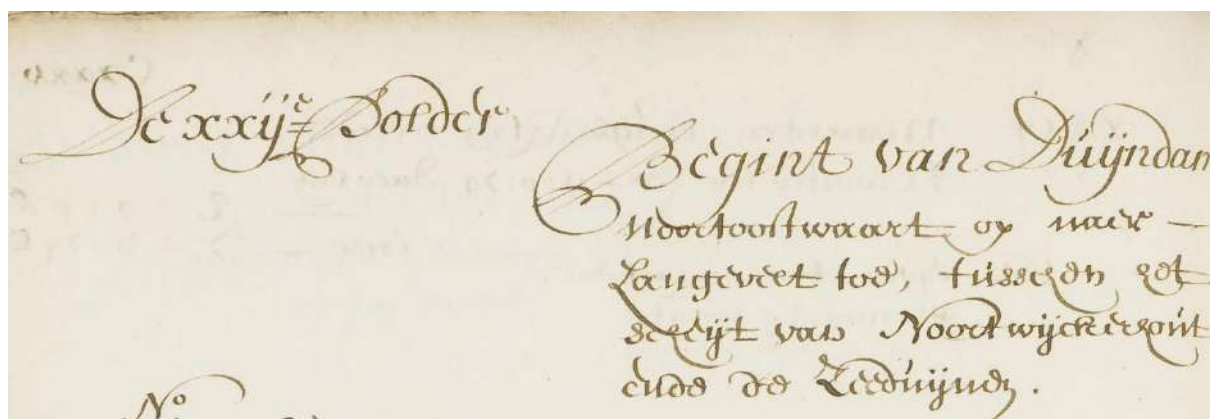 De xxije Polder
Begint van Duijndam
Noortoostwaart op naer —
Langevelt toe, tusschen het
scheijt van Noortwijckerhout
ende de Zeeduijnen.
No